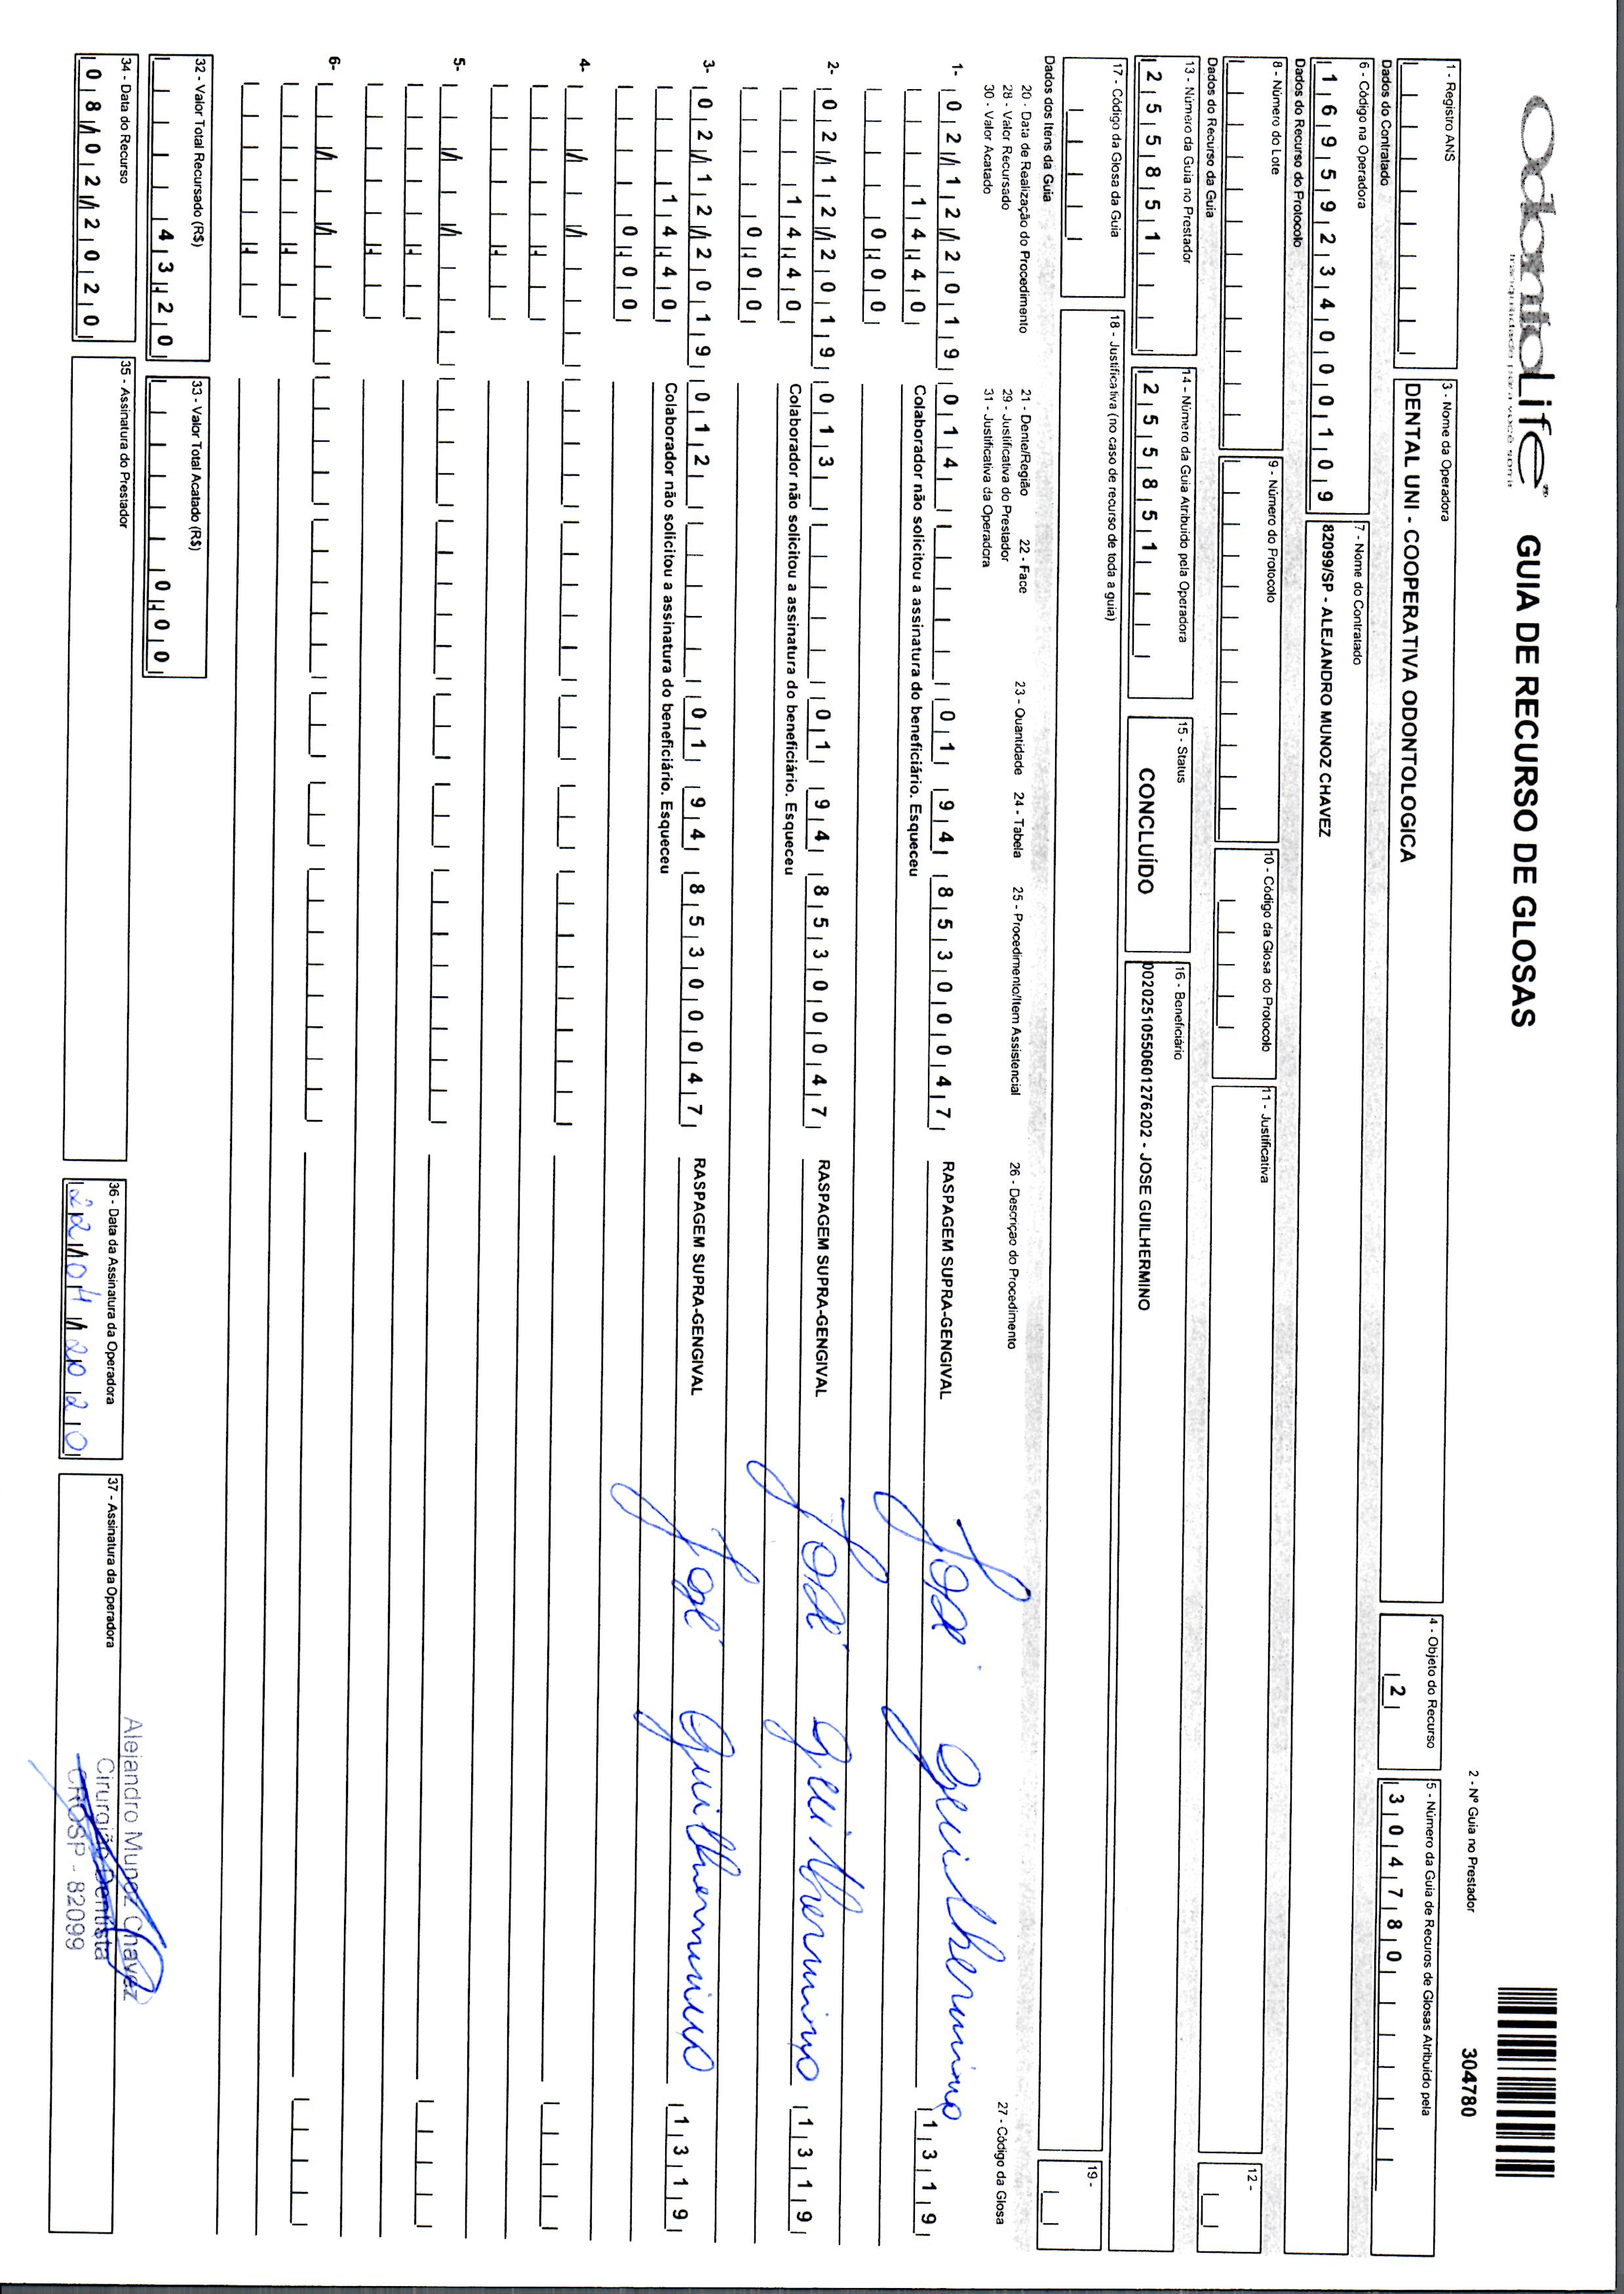 OdontoLife GUIA DE RECURSO DE GLOSAS
2 - Nº Guia no Prestador 304780
1 - Registro ANS
3 - Nome da Operadora
DENTAL UNI - COOPERATIVA ODONTOLOGICA
4 - Objeto do Recurso
2
5 - Número da Guia de Recuros de Glosas Atribuído pela
304780
Dados do Contratado
6 - Código na Operadora
16959234000109
7 - Nome do Contratado
82099/SP - ALEJANDRO MUNOZ CHAVEZ
Dados do Recurso do Protocolo
8 - Número do Lote
9 - Número do Protocolo
10 - Código da Glosa do Protocolo
11 - Justificativa
12 -
Dados do Recurso da Guia
13 - Número da Guia no Prestador
2558851
14 - Número da Guia Atribuído pela Operadora
2558851
15 - Status
CONCLUÍDO
16 - Beneficiário
00202510550601276202 - JOSE GUILHERMINO
17 - Código da Glosa da Guia
18 - Justificativa (no caso de recurso de toda a guia)
19 -
Dados dos Itens da Guia
20 - Data de Realização do Procedimento 21 - Dente/Região 22 - Face 23 - Quantidade 24 - Tabela 25 - Procedimento/Item Assistencial 26 - Descriçao do Procedimento 27 - Código da Glosa
28 - Valor Recursado 29 - Justificativa do Prestador
30 - Valor Acatado 31 - Justificativa da Operadora
1- 02/12/2019 014 01 94 85300047 RASPAGEM SUPRA-GENGIVAL José Guilhermino 1319
14,40 Colaborador não solicitou a assinatura do beneficiário. Esqueceu
0,00
2- 02/12/2019 013 01 94 85300047 RASPAGEM SUPRA-GENGIVAL José Guilhermino 1319
14,40 Colaborador não solicitou a assinatura do beneficiário. Esqueceu
0,00
3- 02/12/2019 012 01 94 85300047 RASPAGEM SUPRA-GENGIVAL José Guilhermino 1319
14,40 Colaborador não solicitou a assinatura do beneficiário. Esqueceu
0,00
4-
5-
6-
32 - Valor Total Recursado (R$)
43,20
33 - Valor Total Acatado (R$)
0,00
34 - Data do Recurso
08/02/2020
35 - Assinatura do Prestador
36 - Data da Assinatura da Operadora
22/04/2020
37 - Assinatura da Operadora
Alejandro Munoz Chavez
Cirurgião Dentista
CROSP - 82099